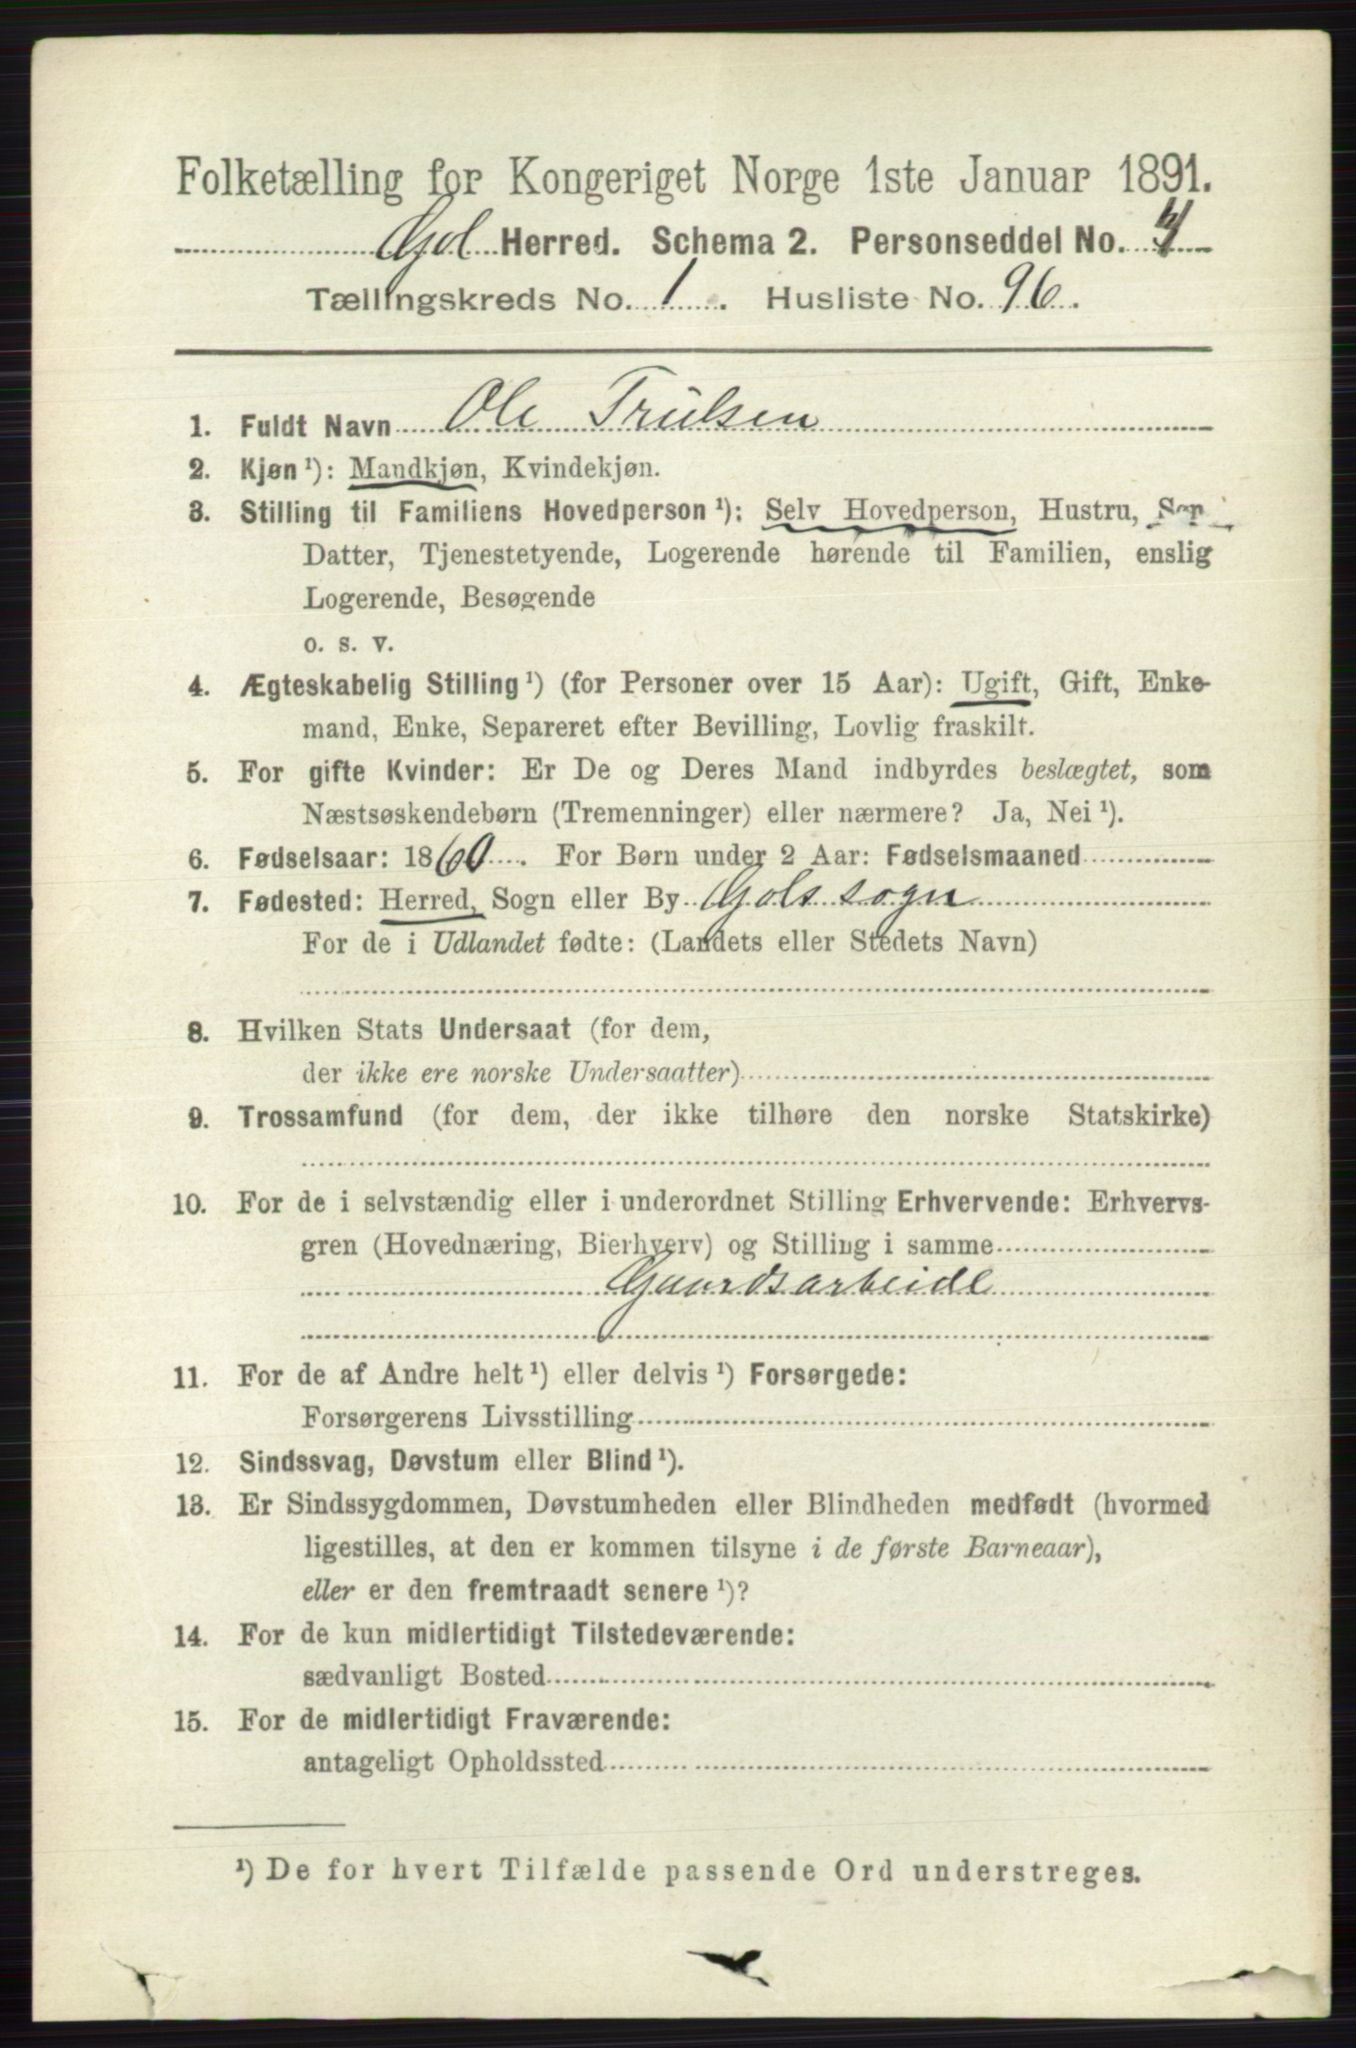 Folketælling for Kongeriget Norge 1ste Januar 1891.
Gol Herred. Schema 2. Personseddel No. 4
Tællingskreds No. 1. Husliste No. 96.
1. Fuldt Navn Ole Trulsen
2. Kjøn ¹): Mandkjøn, Kvindekjøn.
3. Stilling til Familiens Hovedperson ¹): Selv Hovedperson, Hustru, Søn
Datter, Tjenestetyende, Logerende hørende til Familien, enslig
Logerende, Besøgende
o. s. v.
4. Ægteskabelig Stilling ¹) (for Personer over 15 Aar): Ugift, Gift, Enke-
mand, Enke, Separeret efter Bevilling, Lovlig fraskilt.
5. For gifte Kvinder: Er De og Deres Mand indbyrdes beslægtet, som
Næstsøskendebørn (Tremenninger) eller nærmere? Ja, Nei ¹).
6. Fødselsaar: 1860. For Børn under 2 Aar: Fødselsmaaned
7. Fødested: Herred, Sogn eller By Gols sogn
For de i Udlandet fødte: (Landets eller Stedets Navn)
8. Hvilken Stats Undersaat (for dem,
der ikke ere norske Undersaatter)
9. Trossamfund (for dem, der ikke tilhøre den norske Statskirke)
10. For de i selvstændig eller i underordnet Stilling Erhvervende: Erhvervs-
gren (Hovednæring, Bierhverv) og Stilling i samme
Gaardsarbeide
11. For de af Andre helt ¹) eller delvis ¹) Forsørgede:
Forsørgerens Livsstilling
12. Sindssvag, Døvstum eller Blind ¹).
13. Er Sindssygdommen, Døvstumheden eller Blindheden medfødt (hvormed
ligestilles, at den er kommen tilsyne i de første Barneaar),
eller er den fremtraadt senere ¹)?
14. For de kun midlertidigt Tilstedeværende:
sædvanligt Bosted
15. For de midlertidigt Fraværende:
antageligt Opholdssted
¹) De for hvert Tilfælde passende Ord understreges.